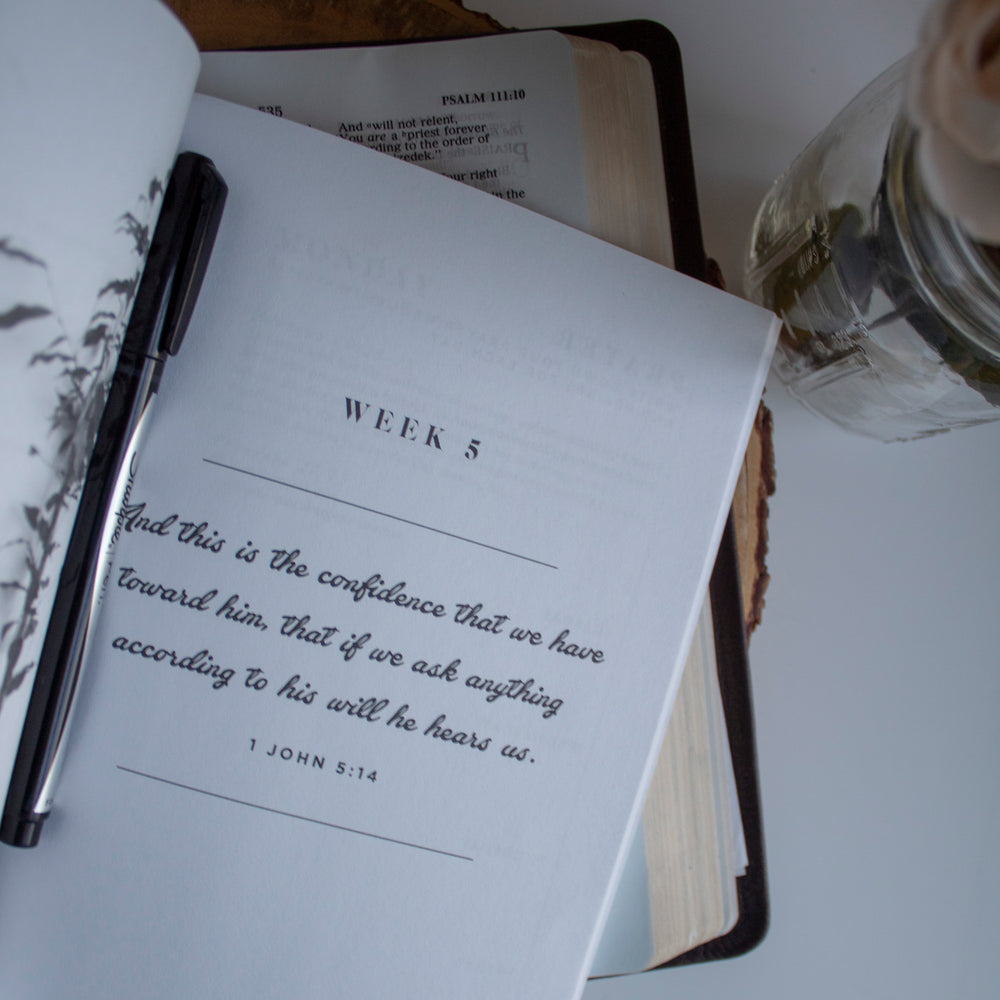 535
PSALM 111:10
And will not relent,
You are a priest forever
ording to the order of
zedek."
our right
in the
WEEK 5
And this is the confidence that we have
toward him, that if we ask anything
according to his will he hears us.
1 JOHN 5:14